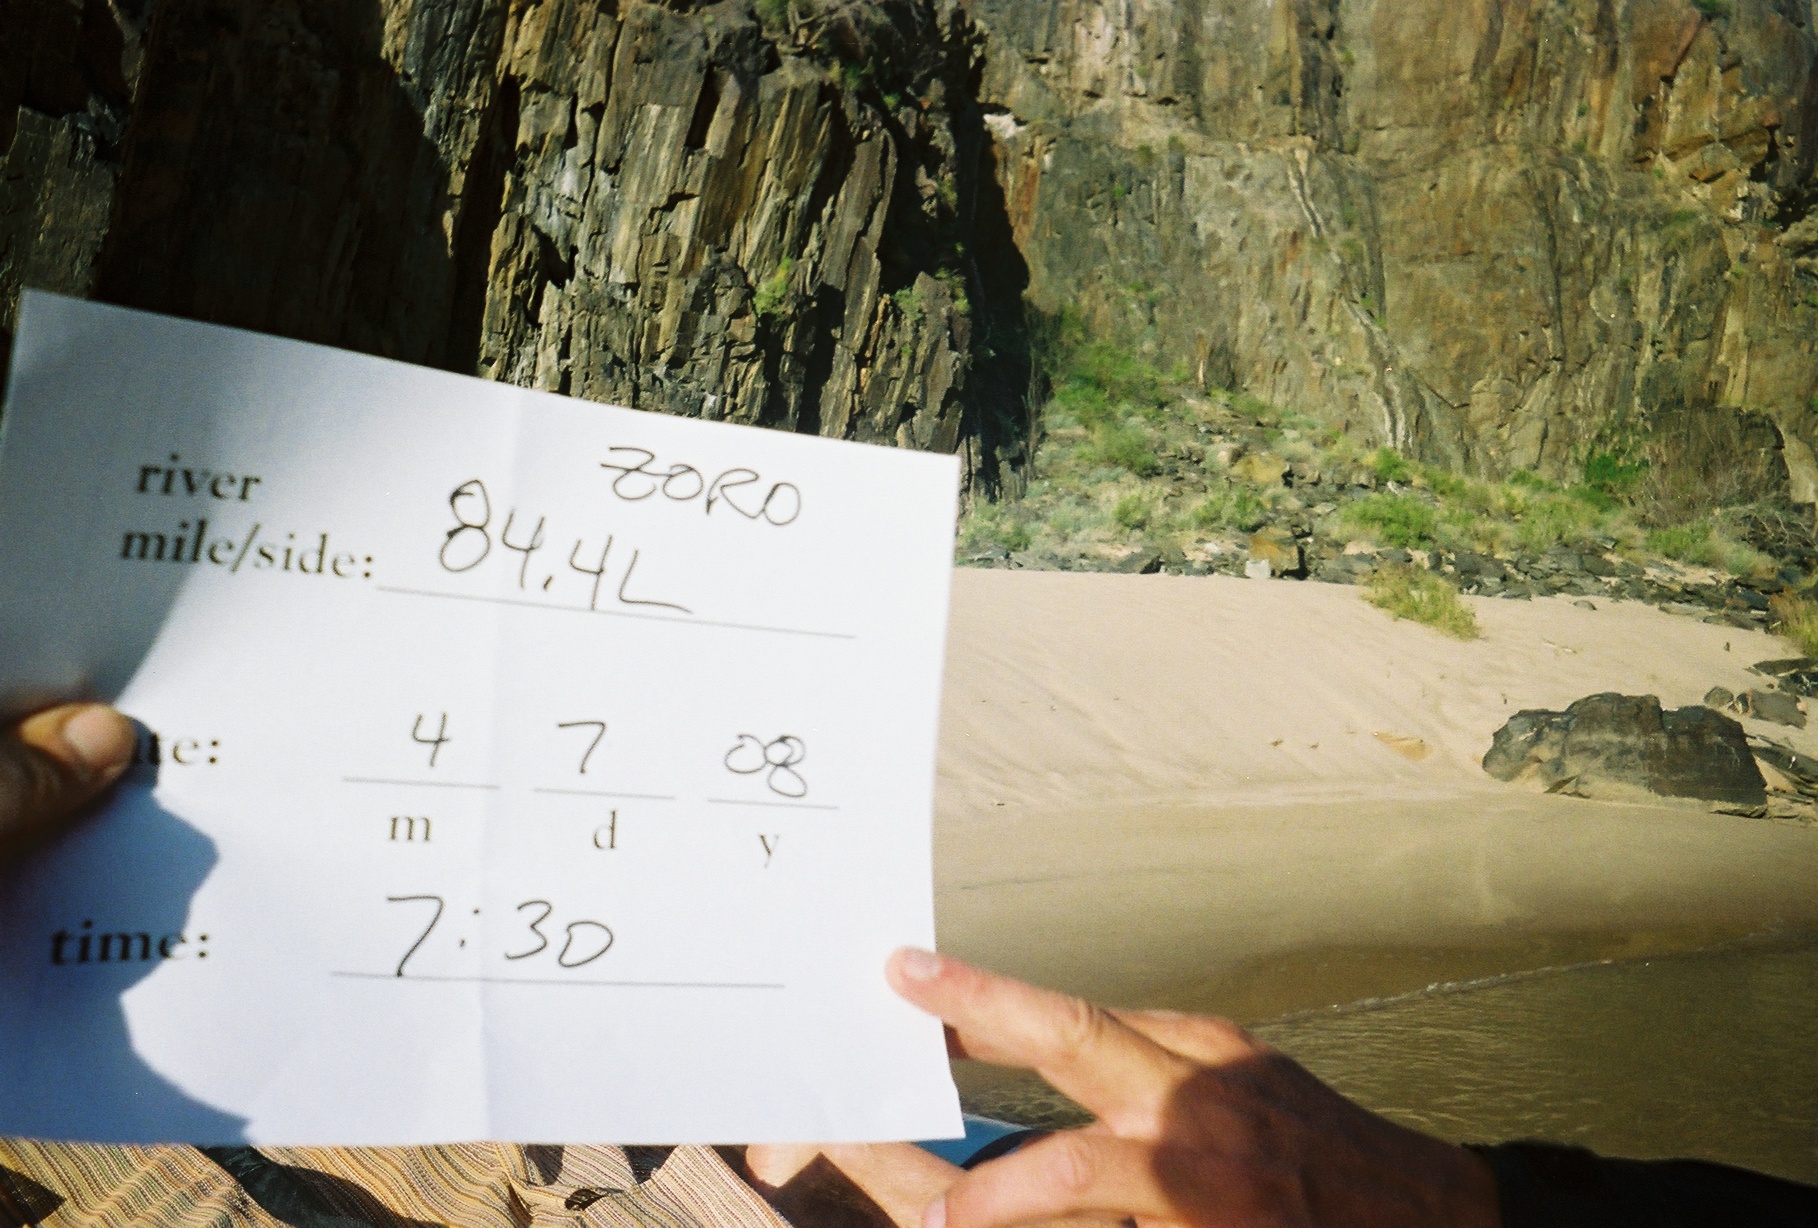 ZORO
river
mile/side: 84.4L
te: 4 7 08
m d y
time: 7:30